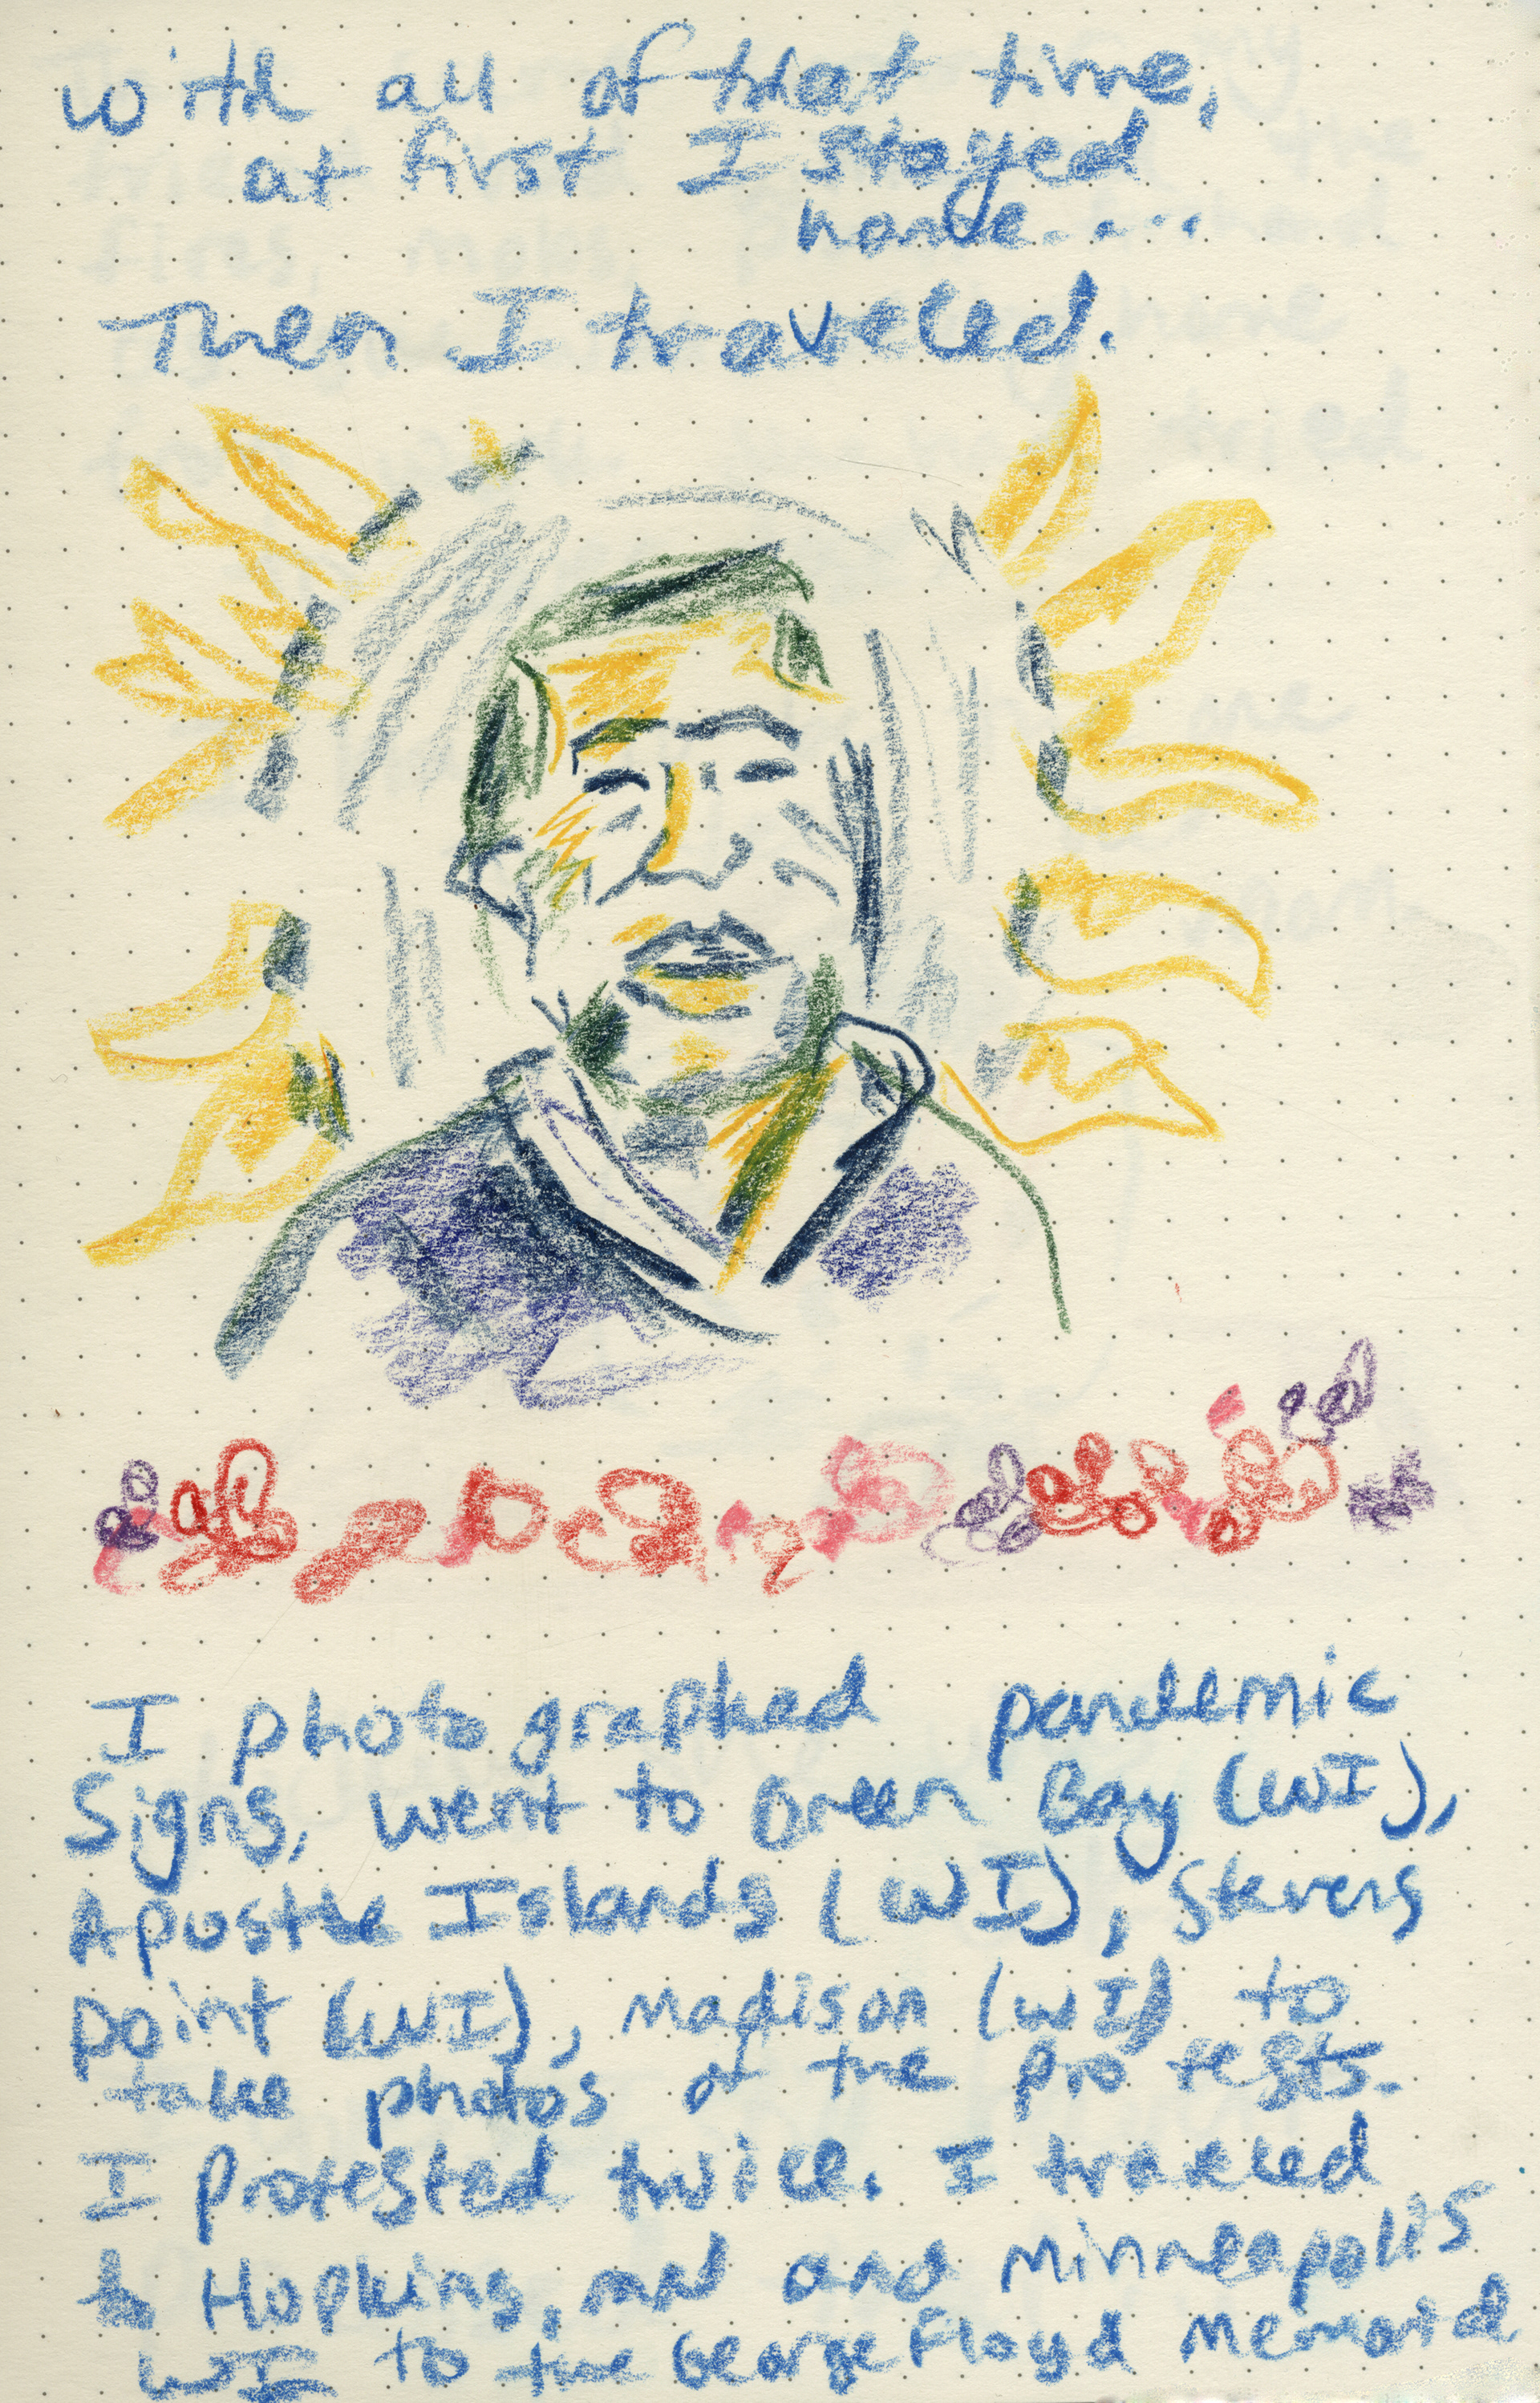 With all of that time,
at first I stayed
home.....
Then I traveled.
I photographed pandemic
Signs, went to Green Bay (WI),
Apostle Islands (WI), Stevens
point (WI), Madison (WI) to
take photos of the protests.
I protested twice. I traveled
to Hopkins, MN and Minneapolis
WI to the George Floyd Memorial